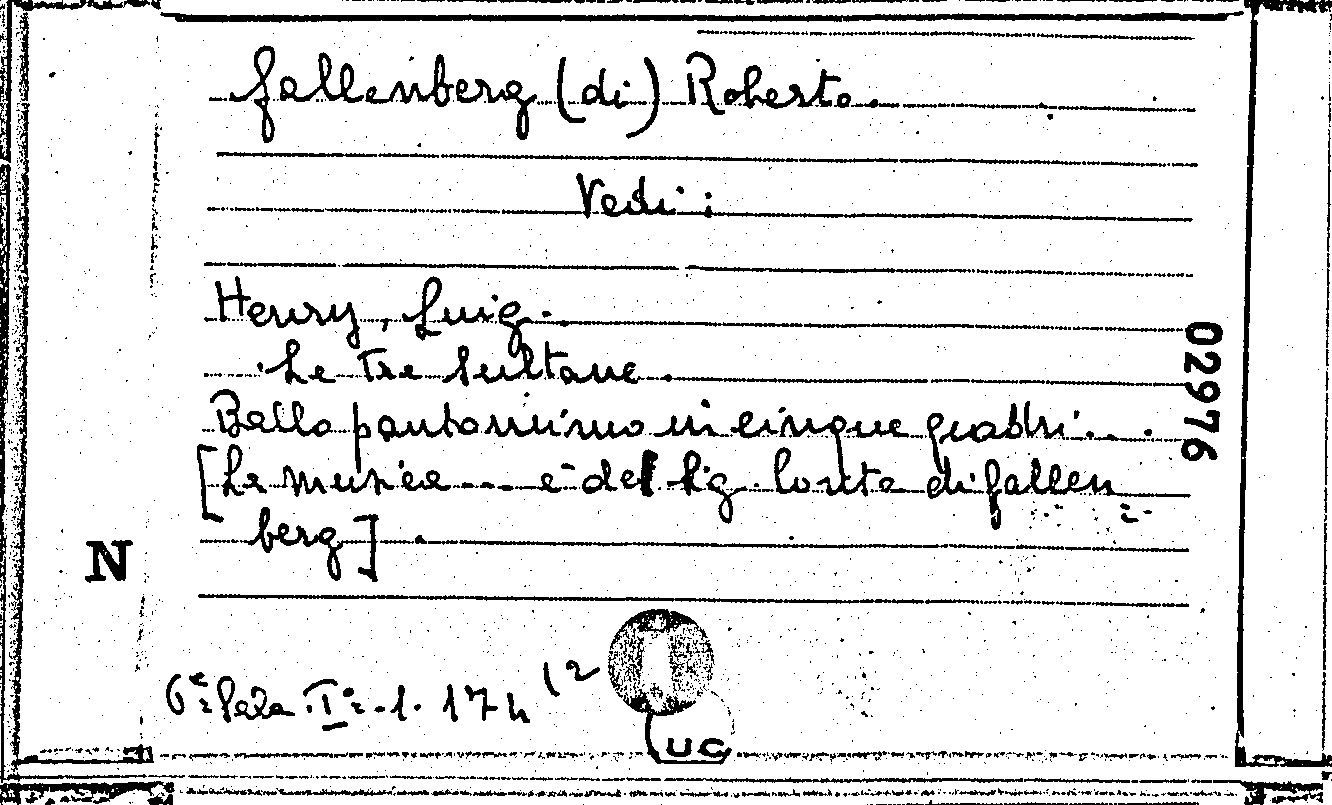 Fallenberg (di) Roberto.
Vedi:
Henry, Luigi.
Le tre sultane.
Ballo pantomimo in cinque quadri...
[La musica ... è del Sig. Conte di Fallen=
berg].
02976
N
6ª Sala. I=.1. 174 12
UC